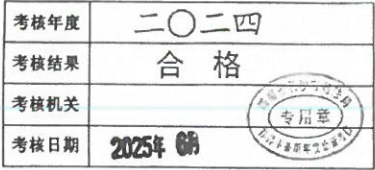 考核年度 二〇二四
考核结果 合 格
考核机关
专用章
考核日期 2025年 6月